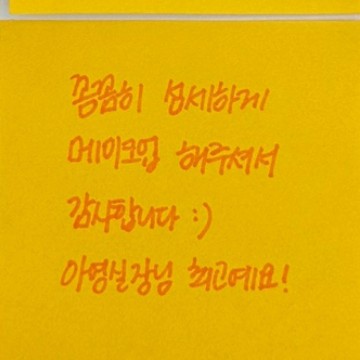 꼼꼼히 섬세하게
메이크업 해주셔서
감사합니다 :)
아영실장님 최고예요!